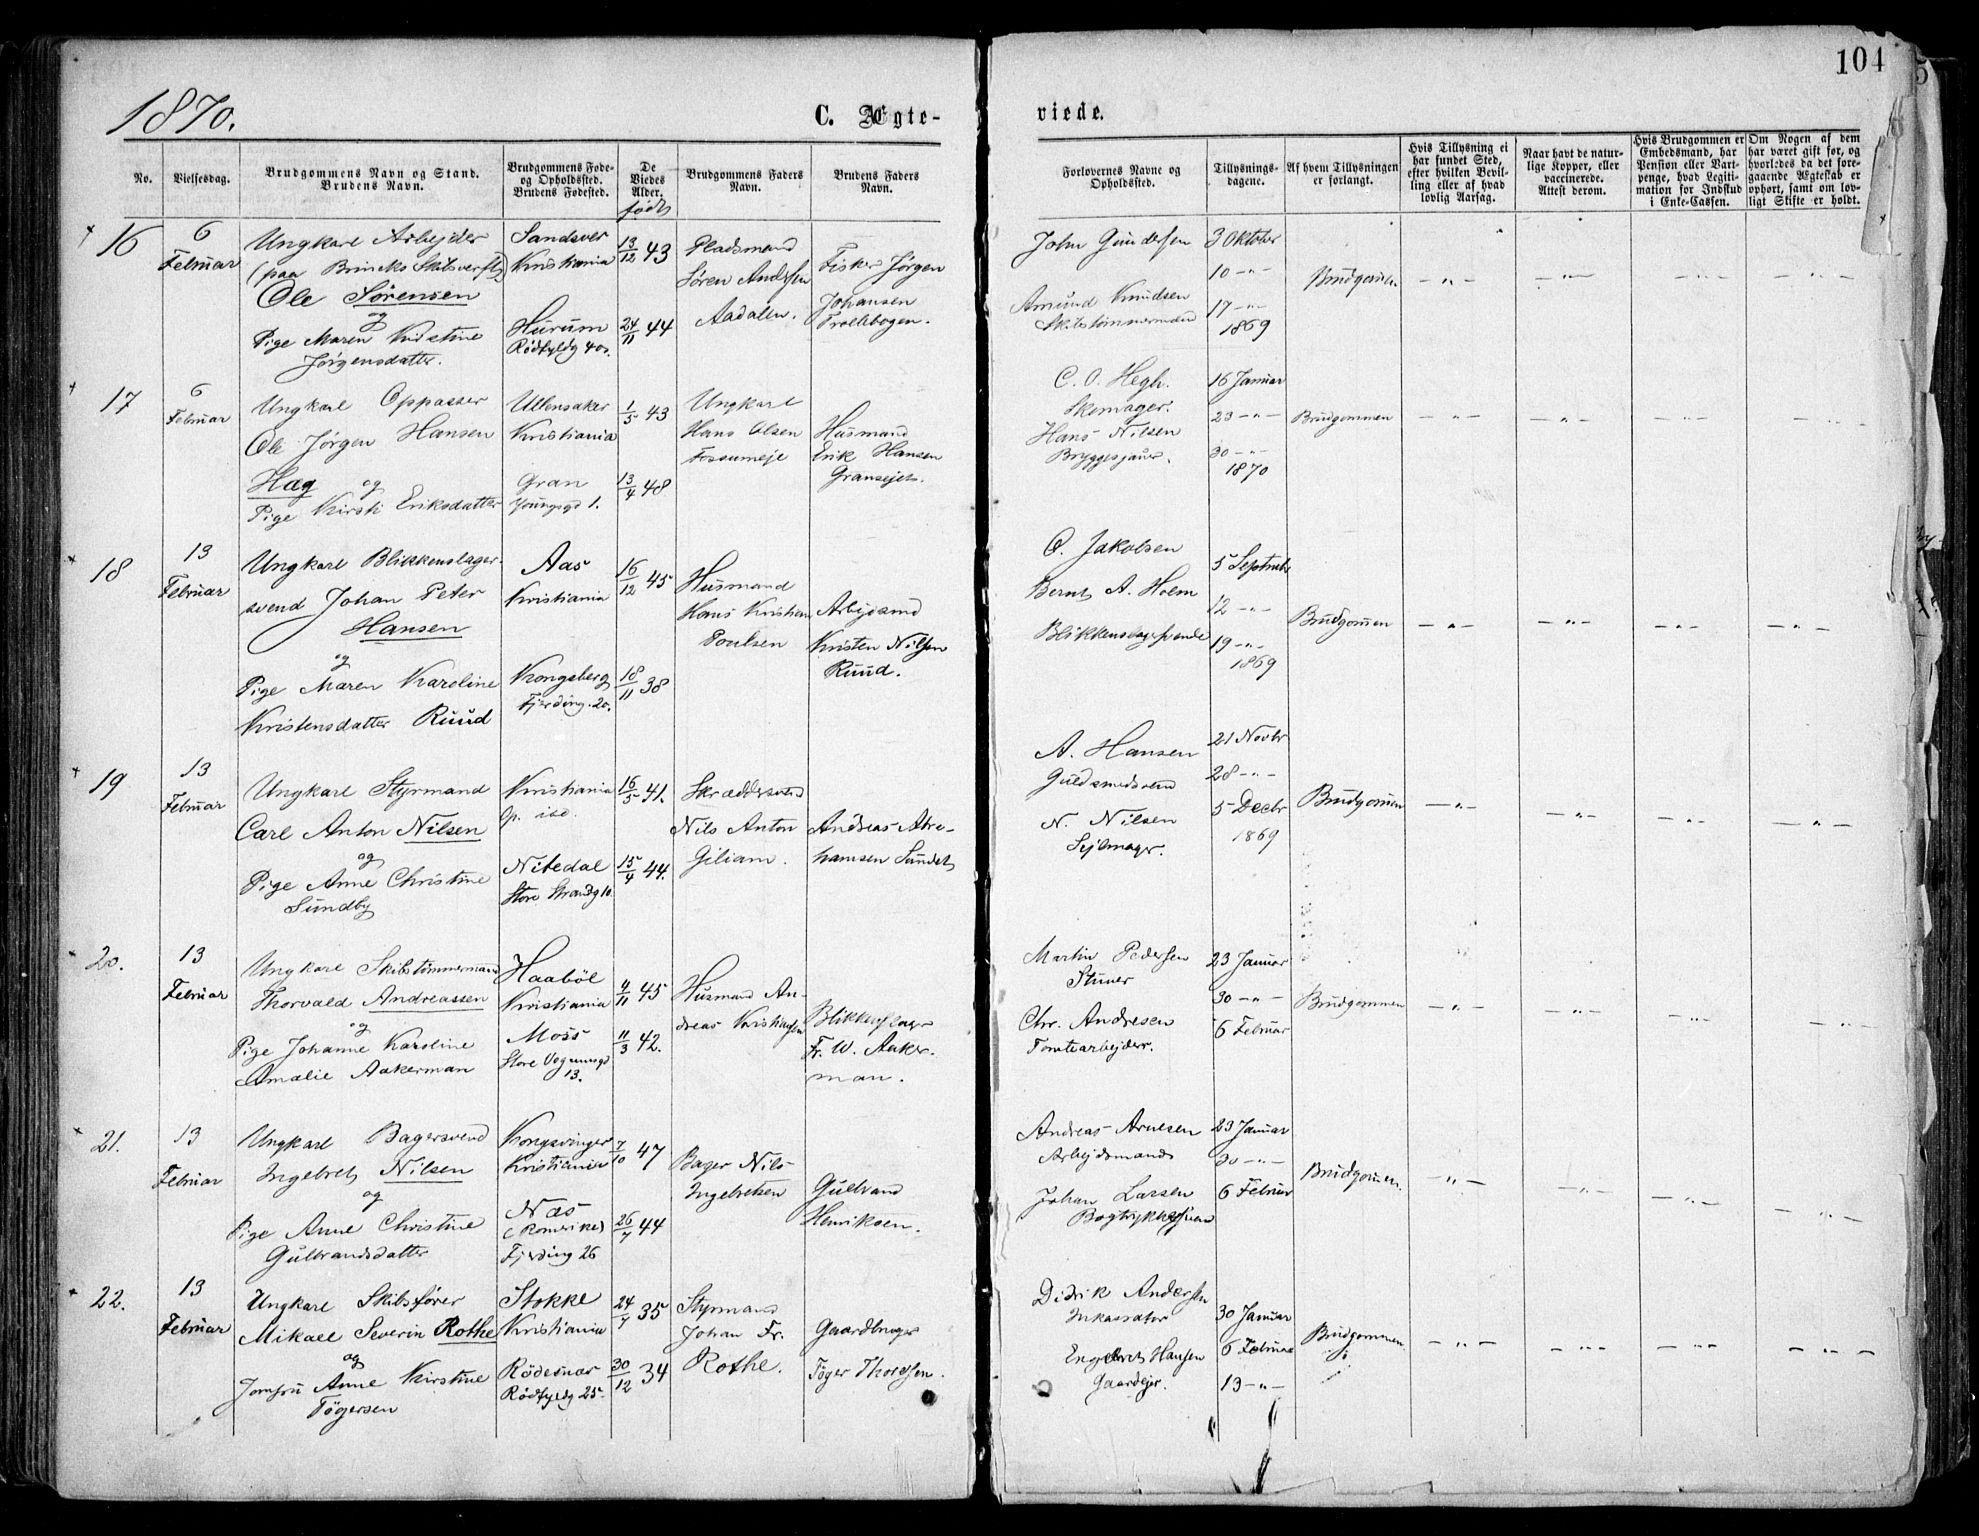 1870.
C. Ægte-
viede.
104
No.
Vielsesdag.
Brudgommens Navn og Stand.
Brudens Navn.
Brudgommens Føde-
og Opholdssted.
Brudens Fødested.
De
Viedes
Alder.
født
Brudgommens Faders
Navn.
Brudens Faders
Navn.
Forlovernes Navne og
Opholdssted.
Tillysnings-
dagene.
Af hvem Tillysningen
er forlangt.
Hvis Tillysning ei
har fundet Sted,
efter hvilken Bevil-
ling eller af hvad
lovlig Aarsag.
Naar havt de natur-
lige Kopper, eller
vaccinerede.
Attest derom.
Hvis Brudgommen er
Embedsmand, har
Pension eller Vart-
penge, hvad Legiti-
mation for Indskud
i Enke-Cassen.
Om Nogen af dem
har været gift før, og
hvorledes da det fore-
gaaende Ægteskab er
ophørt, samt om lov-
ligt Skifte er holdt.
16
6
Februar
Ungkarl Arbejder
(paa Brincks Skibsverft)
Ole Sørensen
og
Pige Maren Kristine
Jørgensdatter.
Sandsver
Kristiania
Hurum
Rödfyldg 40.
13/12 43
24/11 44
Pladsmand
Søren Andersen
Aadalen.
Fisker Jörgen
Johansen
Trollebogen.
John Gundersen
Amund Knudsen
Skibstømmermænd
3 Oktober
10 -"-
17 -"-
1869
Brudgommen
-"- -"- -"- -"-
17
6
Februar
Ungkarl Oppasser
Ole Jørgen Hansen
Hæg og
Pige Kirsti Eriksdatter
Ullensaker
Kristiania
Gran
Youngsgd 1.
1/5 43
13/4 48
Ungkarl
Hans Olsen
Fossumeje
Husmand
Erik Hansen
Gransejet.
C. O. Hegh.
Skomager.
Hans Nilsen
Bryggesjauer.
16 Januar
23 -"-
30 -"-
1870
Brudgommen
-"- -"- -"- -"-
18
13
Februar
Ungkarl Blikkenslager-
svend Johan Peter
Hansen
og
Pige Maren Karoline
Kristensdatter Ruud
Aas
Kristiania
Kongsberg
Fjerding. 20.
16/12 45
18/11 38
Husmand
Hans Kristian
Poulsen
Arbejdsmd
Kristen Nilsen
Ruud.
O. Jakobsen
Bernt A. Holm
Blikkenslagersvende
5 Septmbr
12 -"-
19 -"-
1869
Brudgommen
-"- -"- -"- -"-
19
13
Februar
Ungkarl Styrmand
Carl Anton Nilsen
og
Pige Anne Christine
Sundby
Kristiania
Op. ibd.
Nitedal
Store Strandg 10
16/5 41.
15/4 44.
Skræddersvend
Nils Anton
Giliam.
Andreas Abra-
hamsen Sundet
A. Hansen
Guldsmedsvend
N. Nilsen
Sejlmager.
21 Novbr
28 -"-
5 Decbr
1869
Brudgommen
-"- -"- -"- -"-
20.
13
Februar
Ungkarl Skibstømmermand
Thorvald Andreassen
og
Pige Johanne Karoline
Amalie Aakerman
Haaböl
Kristiania
Moss
Store Vognmsgd
13.
4/11 45
11/3 42.
Husmand An-
dreas Kristiansen
Blikkenslager
Fr. W. Aaker-
man.
Martin Pedersen
Stuver
Chr. Andresen
Tomtearbejder.
23 Januar
30 -"-
6 Februar
Brudgommen
-"- -"- -"- -"-
21.
13
Februar
Ungkarl Bagersvend
Ingebret Nilsen
og
Pige Anne Christine
Gulbrandsdatter
Kongsvinger
Kristiania
Næs
(Romerike)
Fjerding 26
7/10 47
26/7 44
Bager Nils
Ingebretsen
Gulbrand
Henriksen.
Andreas Arnesen
Arbejdsmand
Johan Larsen
Bogtrykkersvend
23 Januar
30 -"-
6 Februar
Brudgommen.
-"- -"- -"- -"-
22.
13
Februar
Ungkarl Skibsfører
Mikael Severin Rothe
og
Jomfru Anne Kirstine
Tögersen
Stokke
Kristiania
Rödesnær
Rödfyldg 25.
24/7 35
30/12 34
Styrmand
Johan Fr.
Rothe.
Gaardbruger
Töger Thordsen.
Didrik Andersen
Inkassator
Engebret Hansen
Gaardejer.
30 Januar
6 Februar
13 -"-
Brudgommen
-"- -"- -"- -"-